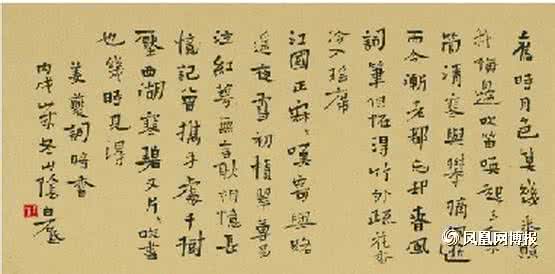 舊時月色算幾番照
我梅邊吹笛喚起玉人不
管清寒與攀摘何遜
而今漸老都忘却春風
詞筆但怪得竹外疏花香
冷入瑤席
江國正寂嘆寄與路
遙夜雪初積翠尊易
泣紅萼無言耿相憶長
憶記曾攜手處千樹
壓西湖寒碧又片片吹盡
也幾時見得
姜夔詞暗香
丙戌冬山陰白
凤凰网博报